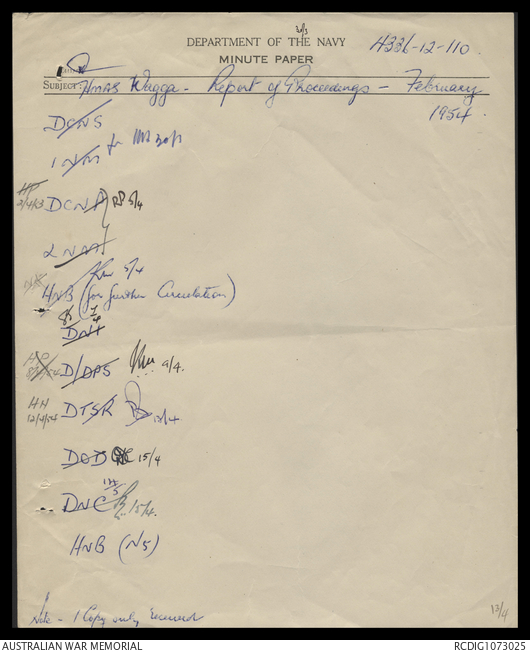 30/3
DEPARTMENT OF THE NAVY
4336-12-110.
MINUTE PAPER
SUBJECT: HMAS Wagga - Report of Proceedings - February
1954.
DCNS
1 NM 30/3
DCNP 5/4
2 NM
5/4
HNB (for further Circulation)
DNI
D/DPS 9/4.
HH
12/4/54 DTSR 13/4
DOD 15/4
DNC 15/4.
HNB (N5)
Note - 1 Copy only received
12/4
AUSTRALIAN WAR MEMORIAL
RCDIG1073025